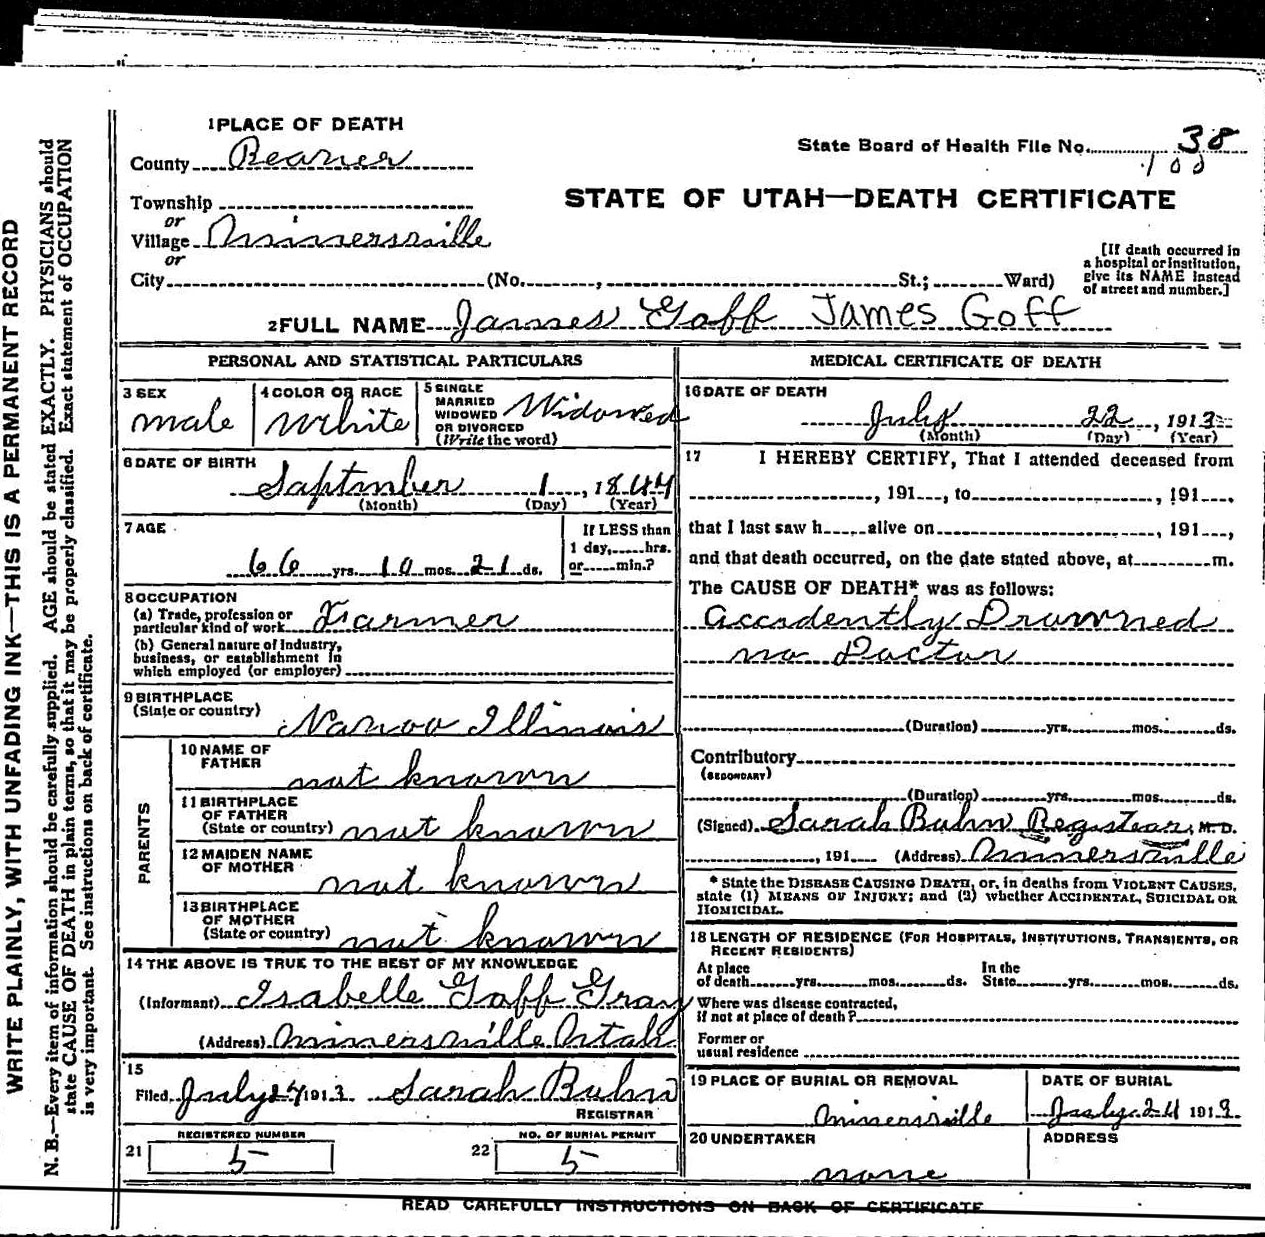 WRITE PLAINLY, WITH UNFADING INK—THIS IS A PERMANENT RECORD
N. B.—Every item of information should be carefully supplied. AGE should be stated EXACTLY. PHYSICIANS should
state CAUSE OF DEATH in plain terms, so that it may be properly classified. Exact statement of OCCUPATION
is very important. See instructions on back of certificate.
1 PLACE OF DEATH
County Beaver
State Board of Health File No. 38
100
STATE OF UTAH—DEATH CERTIFICATE
Township
or
Village Minersville
or
City (No. , St.; Ward)
[If death occurred in
a hospital or institution,
give its NAME instead
of street and number.]
2 FULL NAME James Goff James Goff
PERSONAL AND STATISTICAL PARTICULARS
3 SEX
male
4 COLOR OR RACE
White
5 SINGLE
MARRIED
WIDOWED
OR DIVORCED
(Write the word)
Widowed
6 DATE OF BIRTH
Saptmber 1, 1844
(Month) (Day) (Year)
7 AGE
66 yrs. 10 mos. 21 ds.
If LESS than
1 day, hrs.
or min.?
8 OCCUPATION
(a) Trade, profession or
particular kind of work Farmer
(b) General nature of industry,
business, or establishment in
which employed (or employer)
9 BIRTHPLACE
(State or country)
Navoo Illinois
PARENTS
10 NAME OF
FATHER
not known
11 BIRTHPLACE
OF FATHER
(State or country) not known
12 MAIDEN NAME
OF MOTHER
not known
13 BIRTHPLACE
OF MOTHER
(State or country) not known
14 THE ABOVE IS TRUE TO THE BEST OF MY KNOWLEDGE
(Informant) Isabelle Goff Gray
(Address) Minersville Utah
15
Filed July 24 1913 Sarah Buhn
REGISTRAR
REGISTERED NUMBER
21 5
NO. OF BURIAL PERMIT
22 5
MEDICAL CERTIFICATE OF DEATH
16 DATE OF DEATH
July 22, 1913
(Month) (Day) (Year)
17 I HEREBY CERTIFY, That I attended deceased from
, 191 , to , 191 ,
that I last saw h alive on , 191 ,
and that death occurred, on the date stated above, at m.
The CAUSE OF DEATH* was as follows:
Accidently Drowned
no Doctor
(Duration) yrs. mos. ds.
Contributory
(SECONDARY)
(Duration) yrs. mos. ds.
(Signed) Sarah Buhn Registrar, M. D.
, 191 (Address) Minersville
* State the DISEASE CAUSING DEATH, or, in deaths from VIOLENT CAUSES,
state (1) MEANS OF INJURY; and (2) whether ACCIDENTAL, SUICIDAL OR
HOMICIDAL.
18 LENGTH OF RESIDENCE (FOR HOSPITALS, INSTITUTIONS, TRANSIENTS, OR
RECENT RESIDENTS)
At place In the
of death yrs. mos. ds. State yrs. mos. ds.
Where was disease contracted,
if not at place of death?
Former or
usual residence
19 PLACE OF BURIAL OR REMOVAL
Minersville
DATE OF BURIAL
July 24 1913
20 UNDERTAKER
none
ADDRESS
READ CAREFULLY INSTRUCTIONS ON BACK OF CERTIFICATE